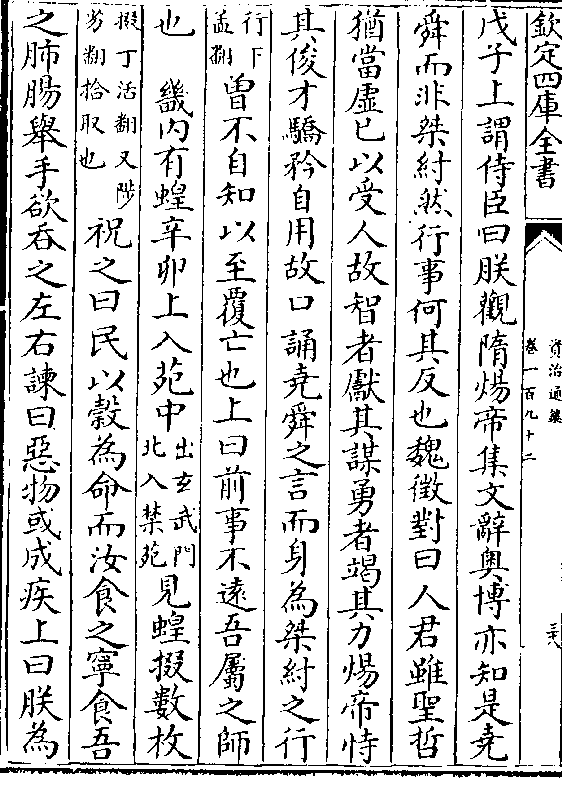 欽定四庫全書
資治通鑑
卷一百九十二
戊子上謂侍臣曰朕觀隋煬帝集文辭奥博亦知是堯
舜而非桀紂然行事何其反也魏徵對曰人君雖聖哲
猶當虚己以受人故智者獻其謀勇者竭其力煬帝恃
其俊才驕矜自用故口誦堯舜之言而身為桀紂之行
行下
孟翻
曾不自知以至覆亡也上曰前事不逺吾屬之師
也　畿内有蝗辛卯上入苑中
出玄武門
北入禁苑
見蝗掇數枚
掇丁活翻又陟
劣翻拾取也
祝之曰民以榖為命而汝食之寧食吾
之肺腸舉手欲吞之左右諫曰惡物或成疾上曰朕為